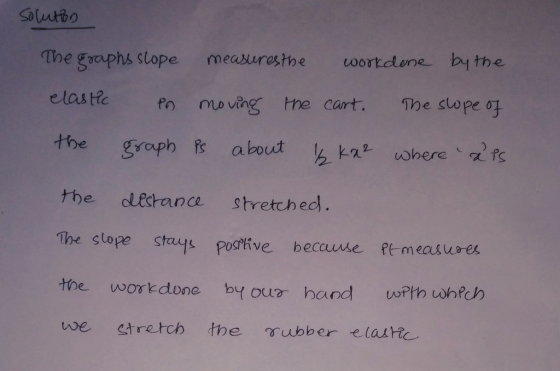 Solution
The graphs slope measures the workdone by the
elastic in moving the cart. The slope of
the graph is about 1/2 kx² where 'x' is
the distance stretched.
The slope stays positive because it measures
the workdone by our hand with which
we stretch the rubber elastic.